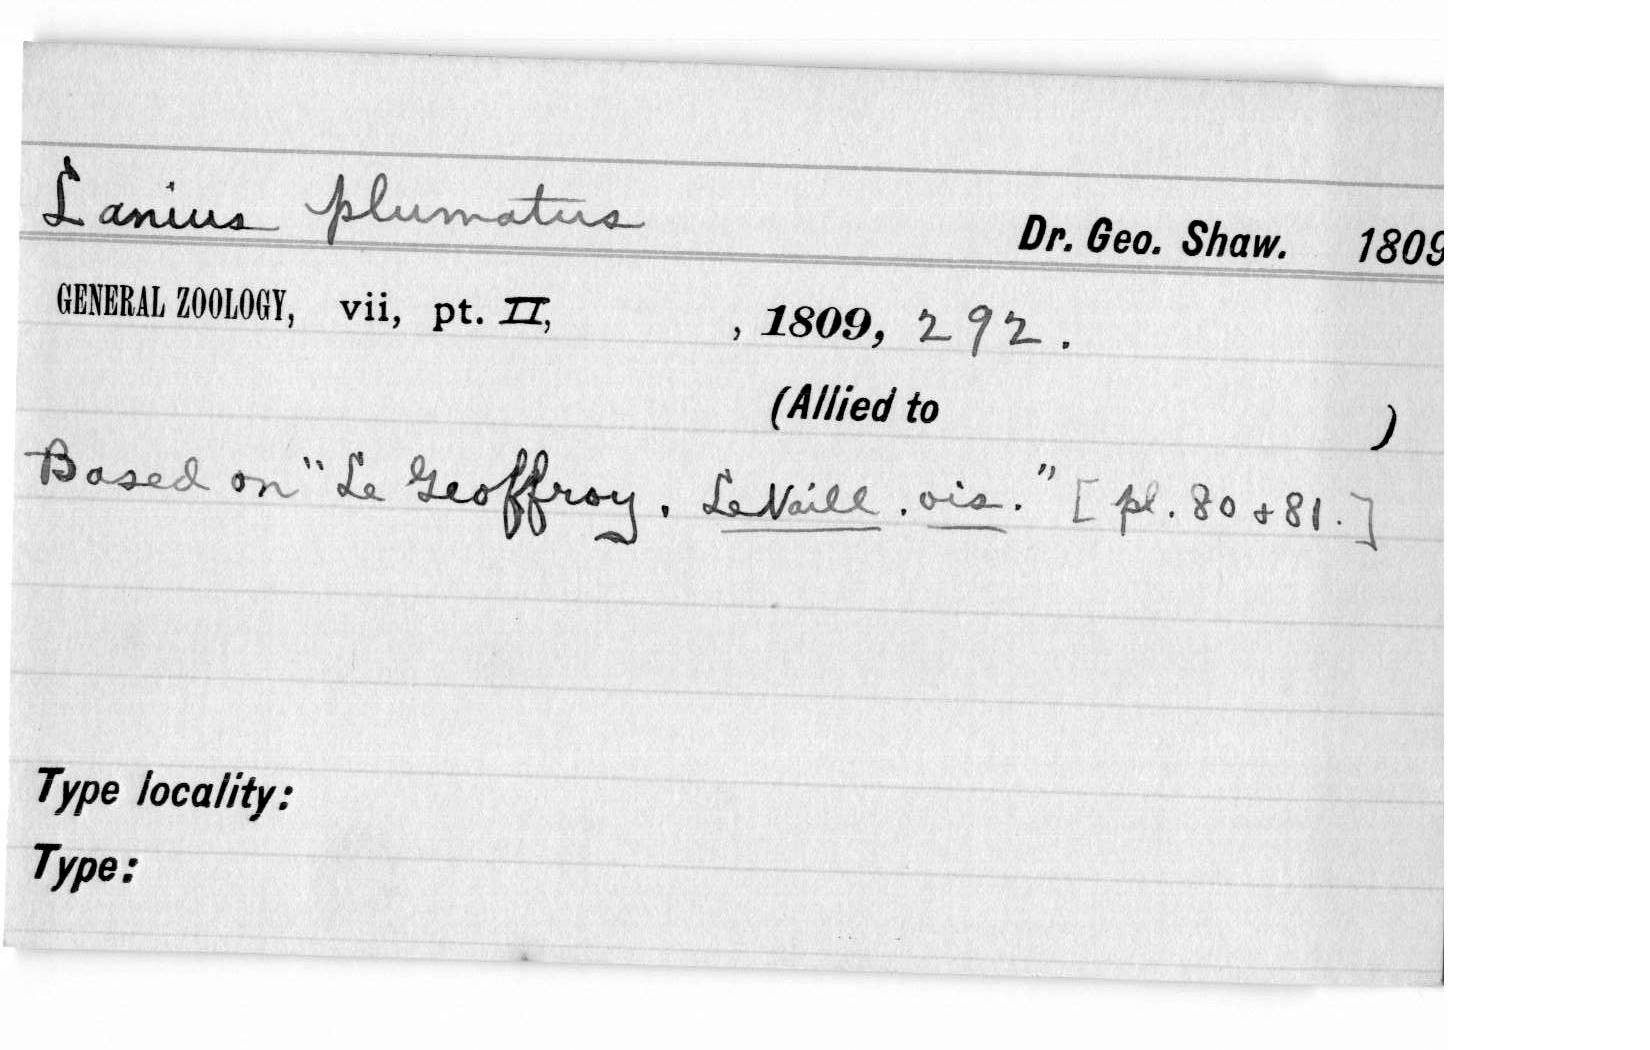 Lanius plumatus Dr. Geo. Shaw. 1809
GENERAL ZOOLOGY, vii, pt. II, , 1809, 292.
(Allied to )
Based on "Le Geoffroy, LeVaill. ois." [pl. 80 + 81.]
Type locality:
Type: